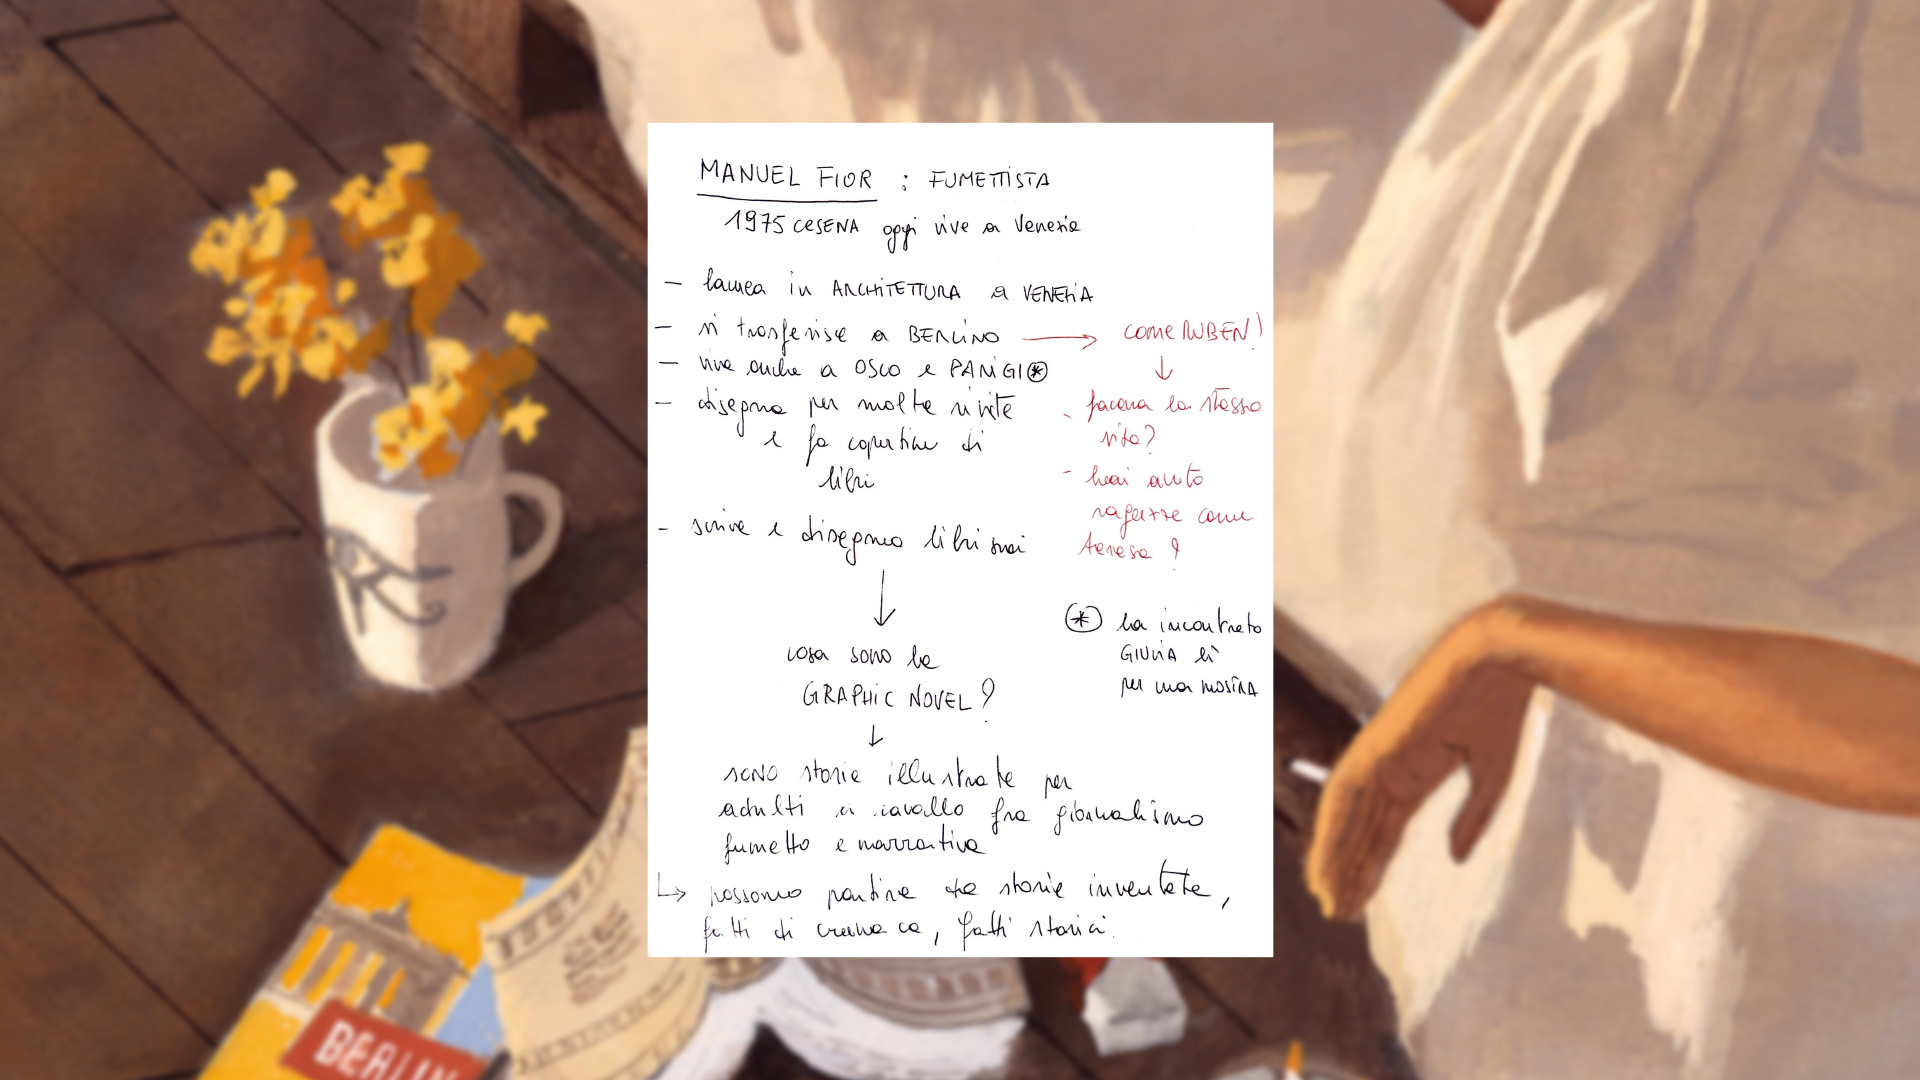 MANUEL FIOR : FUMETTISTA
1975 CESENA oggi vive a Venezia
- laurea in ARCHITETTURA a VENEZIA
- si trasferisce a BERLINO → COME RUBEN!
- vive anche a OSLO e PARIGI *
- disegna per molte riviste
e fa copertine di
libri
- scrive e disegna libri suoi
↓
- faceva la stessa
vita?
- hai avuto
ragazze come
teresa?
* ha incontrato
GIULIA lì
per una MOSTRA
↓
cosa sono le
GRAPHIC NOVEL?
↓
SONO storie illustrate per
adulti a cavallo fra giornalismo
fumetto e narrativa
↳ possono partire da storie inventate,
fatti di cronaca, fatti storici.
BERLIN